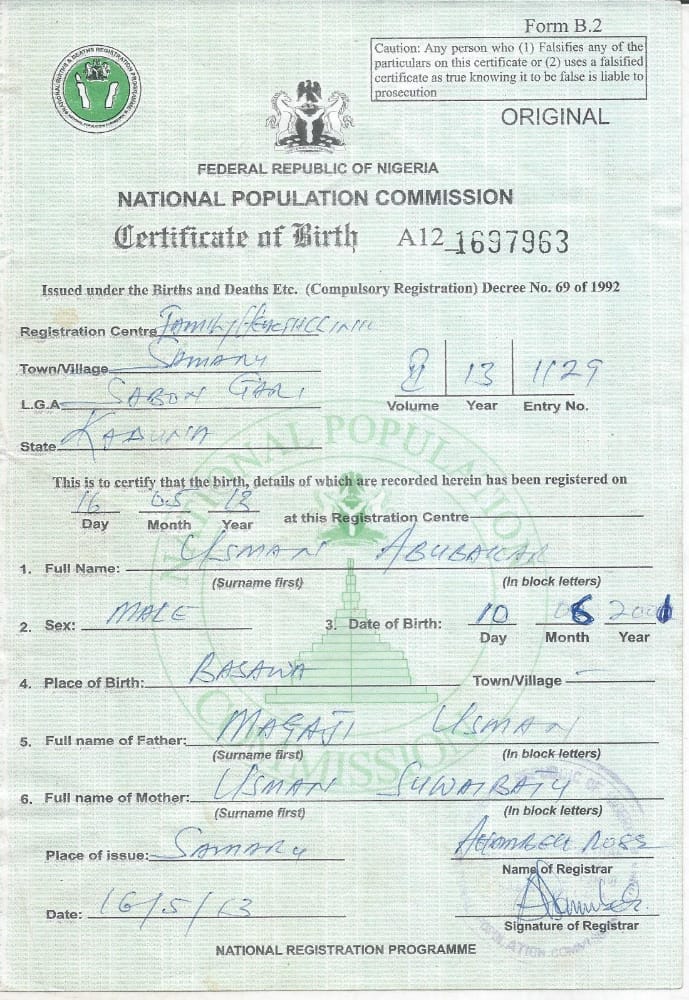 Form B.2
Caution: Any person who (1) Falsifies any of the
particulars on this certificate or (2) uses a falsified
certificate as true knowing it to be false is liable to
prosecution
ORIGINAL
FEDERAL REPUBLIC OF NIGERIA
NATIONAL POPULATION COMMISSION
Certificate of Birth A12 1697963
Issued under the Births and Deaths Etc. (Compulsory Registration) Decree No. 69 of 1992
Registration Centre FAMILY HEALTH CLINIC
Town/Village SAMARU
L.G.A SABON GARI
State KADUNA
II 13 1129
Volume Year Entry No.
This is to certify that the birth, details of which are recorded herein has been registered on
16 05 13
Day Month Year at this Registration Centre
1. Full Name: USMAN ABUBAKAR
(Surname first) (In block letters)
2. Sex: MALE 3. Date of Birth: 10 06 2001
Day Month Year
4. Place of Birth: BASAWA Town/Village –
5. Full name of Father: MAGAJI USMAN
(Surname first) (In block letters)
6. Full name of Mother: USMAN SUWAIBATU
(Surname first) (In block letters)
Place of issue: SAMARU
Name of Registrar
Date: 16/5/13
Signature of Registrar
NATIONAL REGISTRATION PROGRAMME
NATIONAL POPULATION COMMISSION